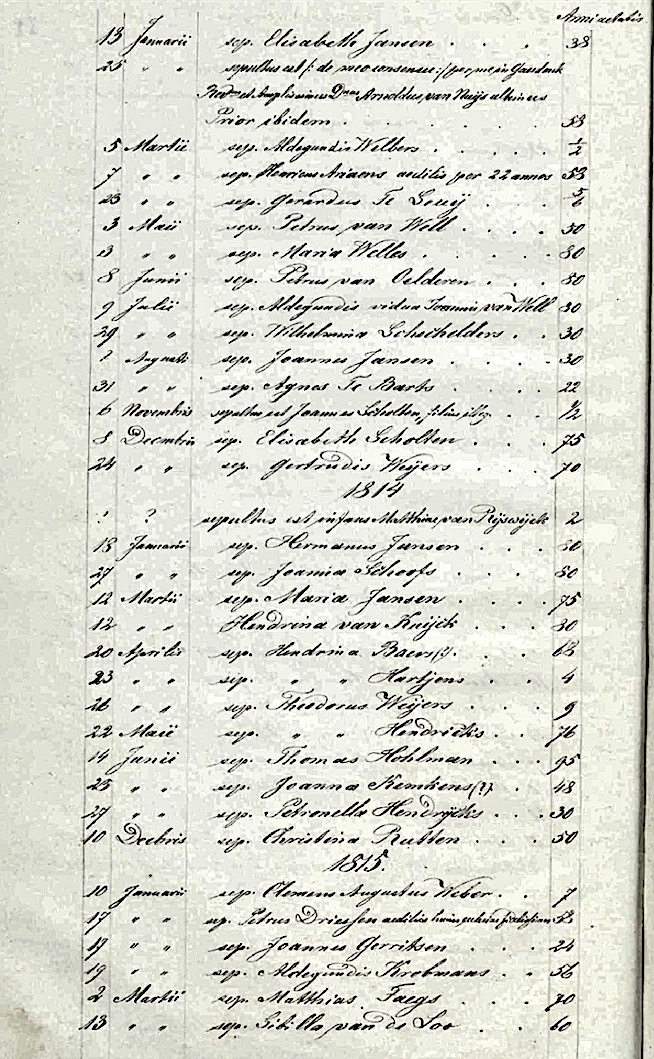 Anni aetatis
13 Januarii sep. Elisabeth Jansen . . . 38
25 " " sepultus est /: de meo consensu :/ per me in Gaesdonk
Rev. et Amplissimus Dnus Arnoldus van Nuijs ultimus
Prior ibidem . . . . . . 58
5 Martii sep. Aldegundis Welbers . . . . 1/2
7 " " sep. Henricus Ariaens aedilis per 22 annos 53
23 " " sep. Gerardus Te Louij . . . 5/6
3 Maii sep. Petrus van Well . . . . 50
13 " " sep. Maria Welles . . . . 80
8 Junii sep. Petrus van Oelderen . . . 80
9 Julii sep. Aldegundis vidua Joannis van Well 80
29 " " sep. Wilhelmina Schschelders . . 30
? Augusti sep. Joannes Jansen . . . . 30
31 " " sep. Agnes Te Barts . . . . 22
6 Novembris sepultus est Joannes Scholten, filius illeg. . . 1/2
8 Decmbris sep. Elisabeth Scholten . . . 75
24 " " sep. Gertrudis Weijers . . . 70
1814
? ? sepultus est infans Matthiae van Rijswijck 2
18 Januarii sep. Hermanus Jansen . . . 80
27 " " sep. Joanna Schoofs . . . . 80
12 Martii sep. Maria Jansen . . . . 75
12 " " Hendrina van Kuijck . . . 80
20 Aprilis sep. Hendrina Baers(?) . . . 68
23 " " sep. " " Hartjens . . . 4
26 " " sep. Theodorus Weijers . . . 9
22 Maii sep. " " Hendricks . . 76
14 Junii sep. Thomas Hohlman . . . 95
25 " " sep. Joanna Kemkens(?) . . 48
27 " " sep. Petronella Hendrijcks . . 30
10 Decbris sep. Christina Rutten . . . 50
1815.
10 Januarii sep. Clemens Augustus Weber . . 7
17 " " sep. Petrus Driessen aedilis huius
19 " " sep. Joannes Gerritsen . . . 24
19 " " sep. Aldegundis Krebmans . . 56
2 Martii sep. Matthias Faegs . . . 70
13 " " sep. Sibilla van de Loo . . . 60